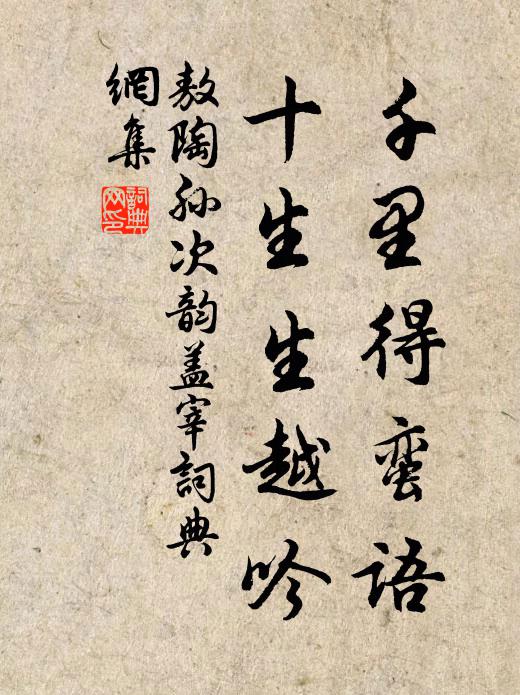 千里得蛮語
十生生越吟
敖陶孙次韵盖宰詞典
網集
詞典网印